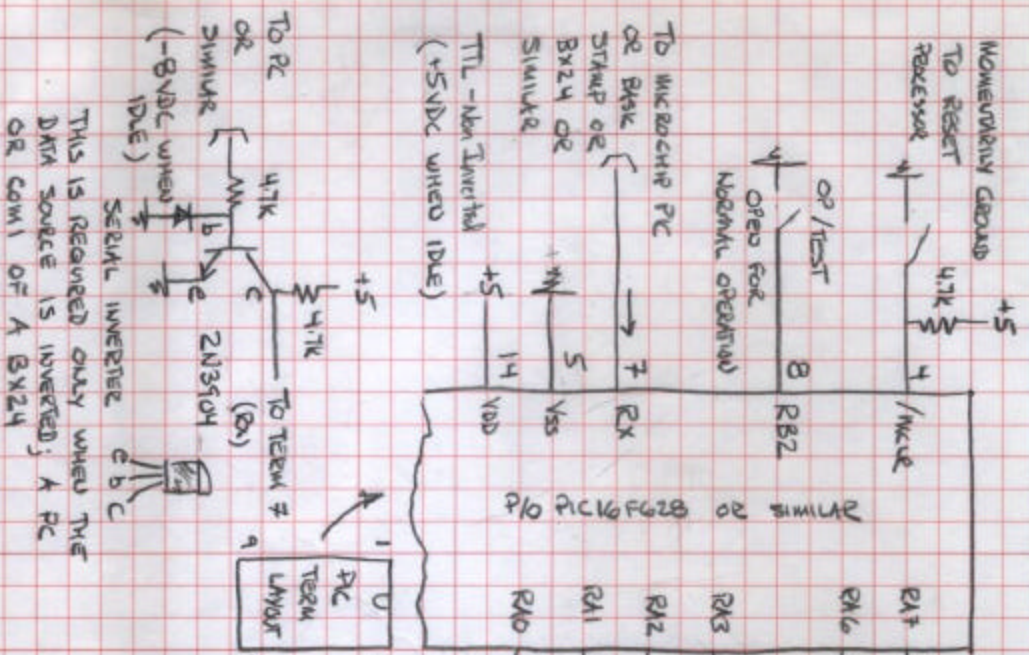 MOMENTARILY GROUND
TO RESET
PROCESSOR
+5
4.7K
4
/MCLR
OP/TEST
OPEN FOR
NORMAL OPERATION
8
RB2
TO MICROCHIP PIC
OR BASIC
STAMP OR
BX24 OR
SIMILAR
TTL-Non Inverted
(+5VDC WHEN IDLE)
7
RX
5
VSS
+5
14
VDD
P/O PIC16F628 OR SIMILAR
RA7
RA6
RA3
RA2
RA1
RA0
TO PC
OR
SIMILAR
(-8VDC WHEN
IDLE)
4.7K
b
c
e
+5
4.7K
TO TERM 7
(RX)
2N3904
SERIAL INVERTER
e b c
THIS IS REQUIRED ONLY WHEN THE
DATA SOURCE IS INVERTED; A PC
OR COM1 OF A BX24
1
9
PIC
TERM
LAYOUT